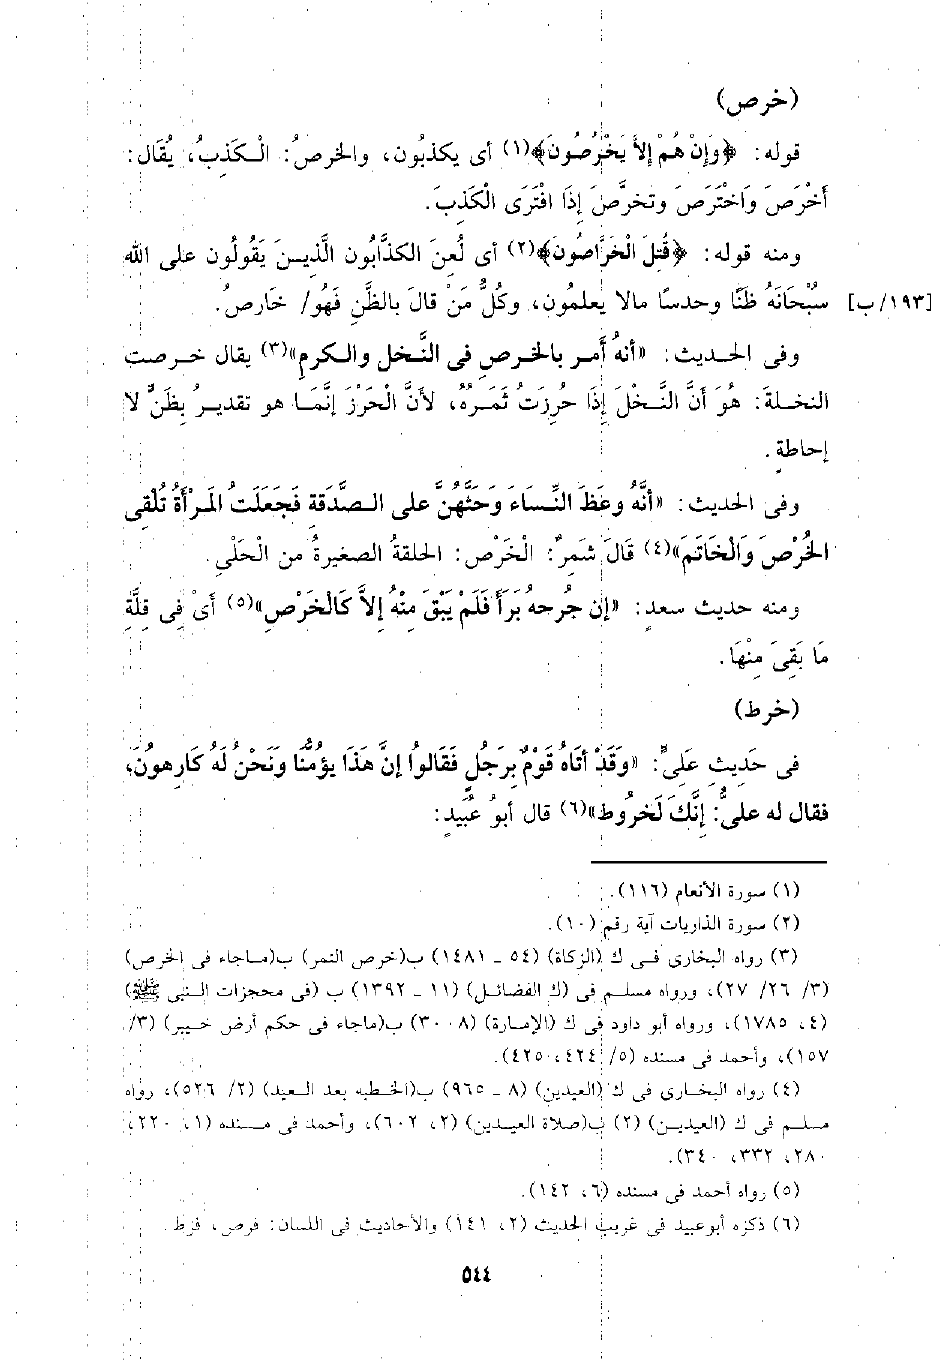 (خرص)
قوله: ﴿وَإِنْ هُمْ إِلاَّ يَخْرُصُونَ﴾(١) أى يكذبُون، والخرصُ: الْكَذِبُ، يُقَال:
أَخْرَصَ وَاخْتَرَصَ وتخرَّصَ إِذَا افْتَرَى الْكَذبَ.
ومنه قوله: ﴿قُتِلَ الْخَرَّاصُونَ﴾(٢) أى لُعنَ الكذَّابُون الَّذِيـنَ يَقُولُون على الله
سُبْحَانَهُ ظَنًّا وحدسًا مالا يعلمُون، وكلُّ مَنْ قالَ بالظَّنِ فَهُو/ خَارصُ. [١٩٣/ب]
وفى الحديث: «أنهُ أَمر بالخرصِ فى النَّخل والكرمِ»(٣) يقال خرصت
النخلة: هُوَ أنَّ النَّخْلَ إِذَا حُرِزَتْ ثَمَرَهُ، لأَنَّ الْحَرْزَ إِنَّمَا هو تقديرُ بِظَنٍّ لا
إحاطةٍ.
وفى الحديث: «أنَّهُ وعَظَ النِّسَاءَ وَحَثَّهُنَّ على الصَّدَقَة فَجَعَلَت المَرْأَةُ تُلْقِى
الخُرْصَ وَالْخَاتَمَ»(٤) قَالَ شَمَرٌ: الْخَرْص: الحلقةُ الصغيرةُ من الْحَلْى.
ومنه حديث سعدٍ: «إن جُرحهُ بَرَأَ فَلَمْ يَبْقَ مِنْهُ إِلاَّ كَالْخَرْصِ»(٥) أىْ فِى قِلَّة
مَا بَقِىَ مِنْهَا.
(خرط)
فى حَدِيثِ عَلِىٍّ: «وَقَدْ أتَاهُ قَوْمٌ بِرَجُلٍ فَقَالُوا إنَّ هَذَا يؤمُّنَا وَنَحْنُ لَهُ كَارهونَ،
فقال له علىٌّ: إِنَّكَ لَخَرُوط»(٦) قال أبو عُبيدٍ:
(١) سورة الأنعام (١١٦).
(٢) سورة الذاريات آية رقم (١٠).
(٣) رواه البخارى فى ك (الزكاة) (٥٤ ـ ١٤٨١) ب(خرص التمر) ب(ماجاء فى الخرص)
(٣/ ٢٦/ ٢٧)، ورواه مسلم فى (ك الفضائل) (١١ ـ ١٣٩٢) ب (فى معجزات النبى ﷺ)
(٤، ١٧٨٥)، ورواه أبو داود فى ك (الإمارة) (٣٠٠٨) ب(ماجاء فى حكم أرض خيبر) (٣/
١٥٧)، وأحمد فى مسنده (٥/ ٤٢٤، ٤٢٥).
(٤) رواه البخارى فى ك (العيدين) (٨ ـ ٩٦٥) ب(الخطبه بعد العيد) (٢/ ٥٢٦)، رواه
مسلم فى ك (العيدين) (٢) ب(صلاة العيدين) (٢، ٦٠٢)، وأحمد فى مسنده (١، ٢٢٠،
٢٨٠، ٣٣٢، ٣٤٠).
(٥) رواه أحمد فى مسنده (٦، ١٤٢).
(٦) ذكره أبوعبيد فى غريب الحديث (٢، ١٤١) والأحاديث فى اللسان: فرص، فرط.
٥٤٤